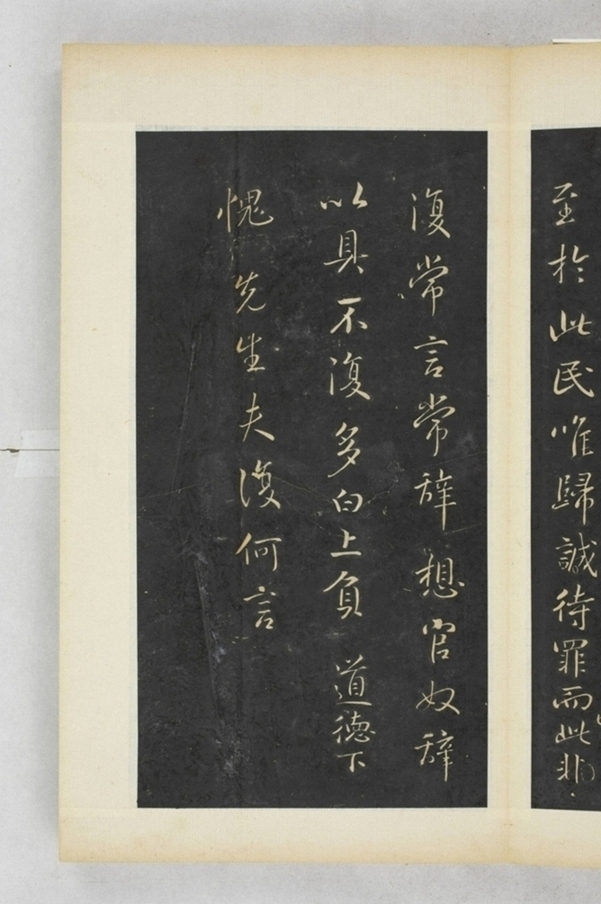 至於此民唯歸誠待罪而此非
復常言常辭想官奴辭
以具不復多白上負 道德下
愧先生夫復何言